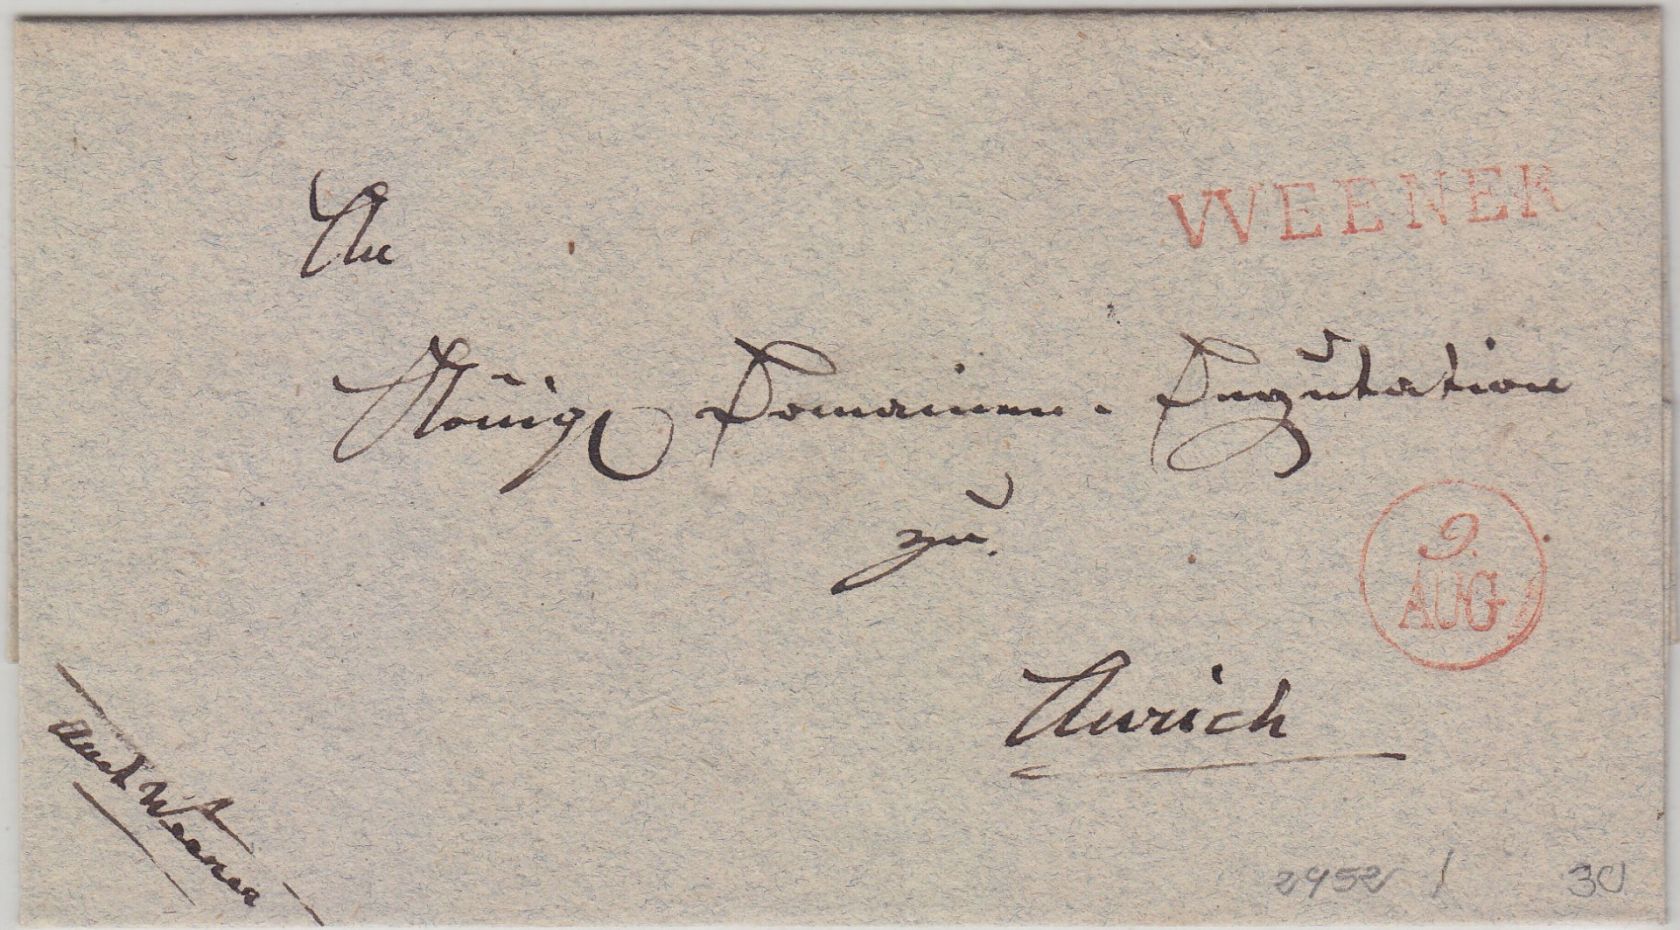 An
WEENER
Königl Domainen - Deputation
zu
9.
AUG
Aurich
Amt Weener
2452 /
30